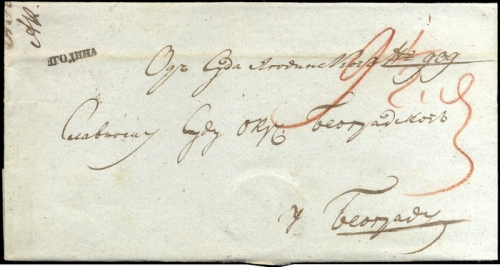 ЯГОДИНА
Одъ Суда Ягодинскогъ № 939
Славному Суду окр. Београдскогъ
у Београду